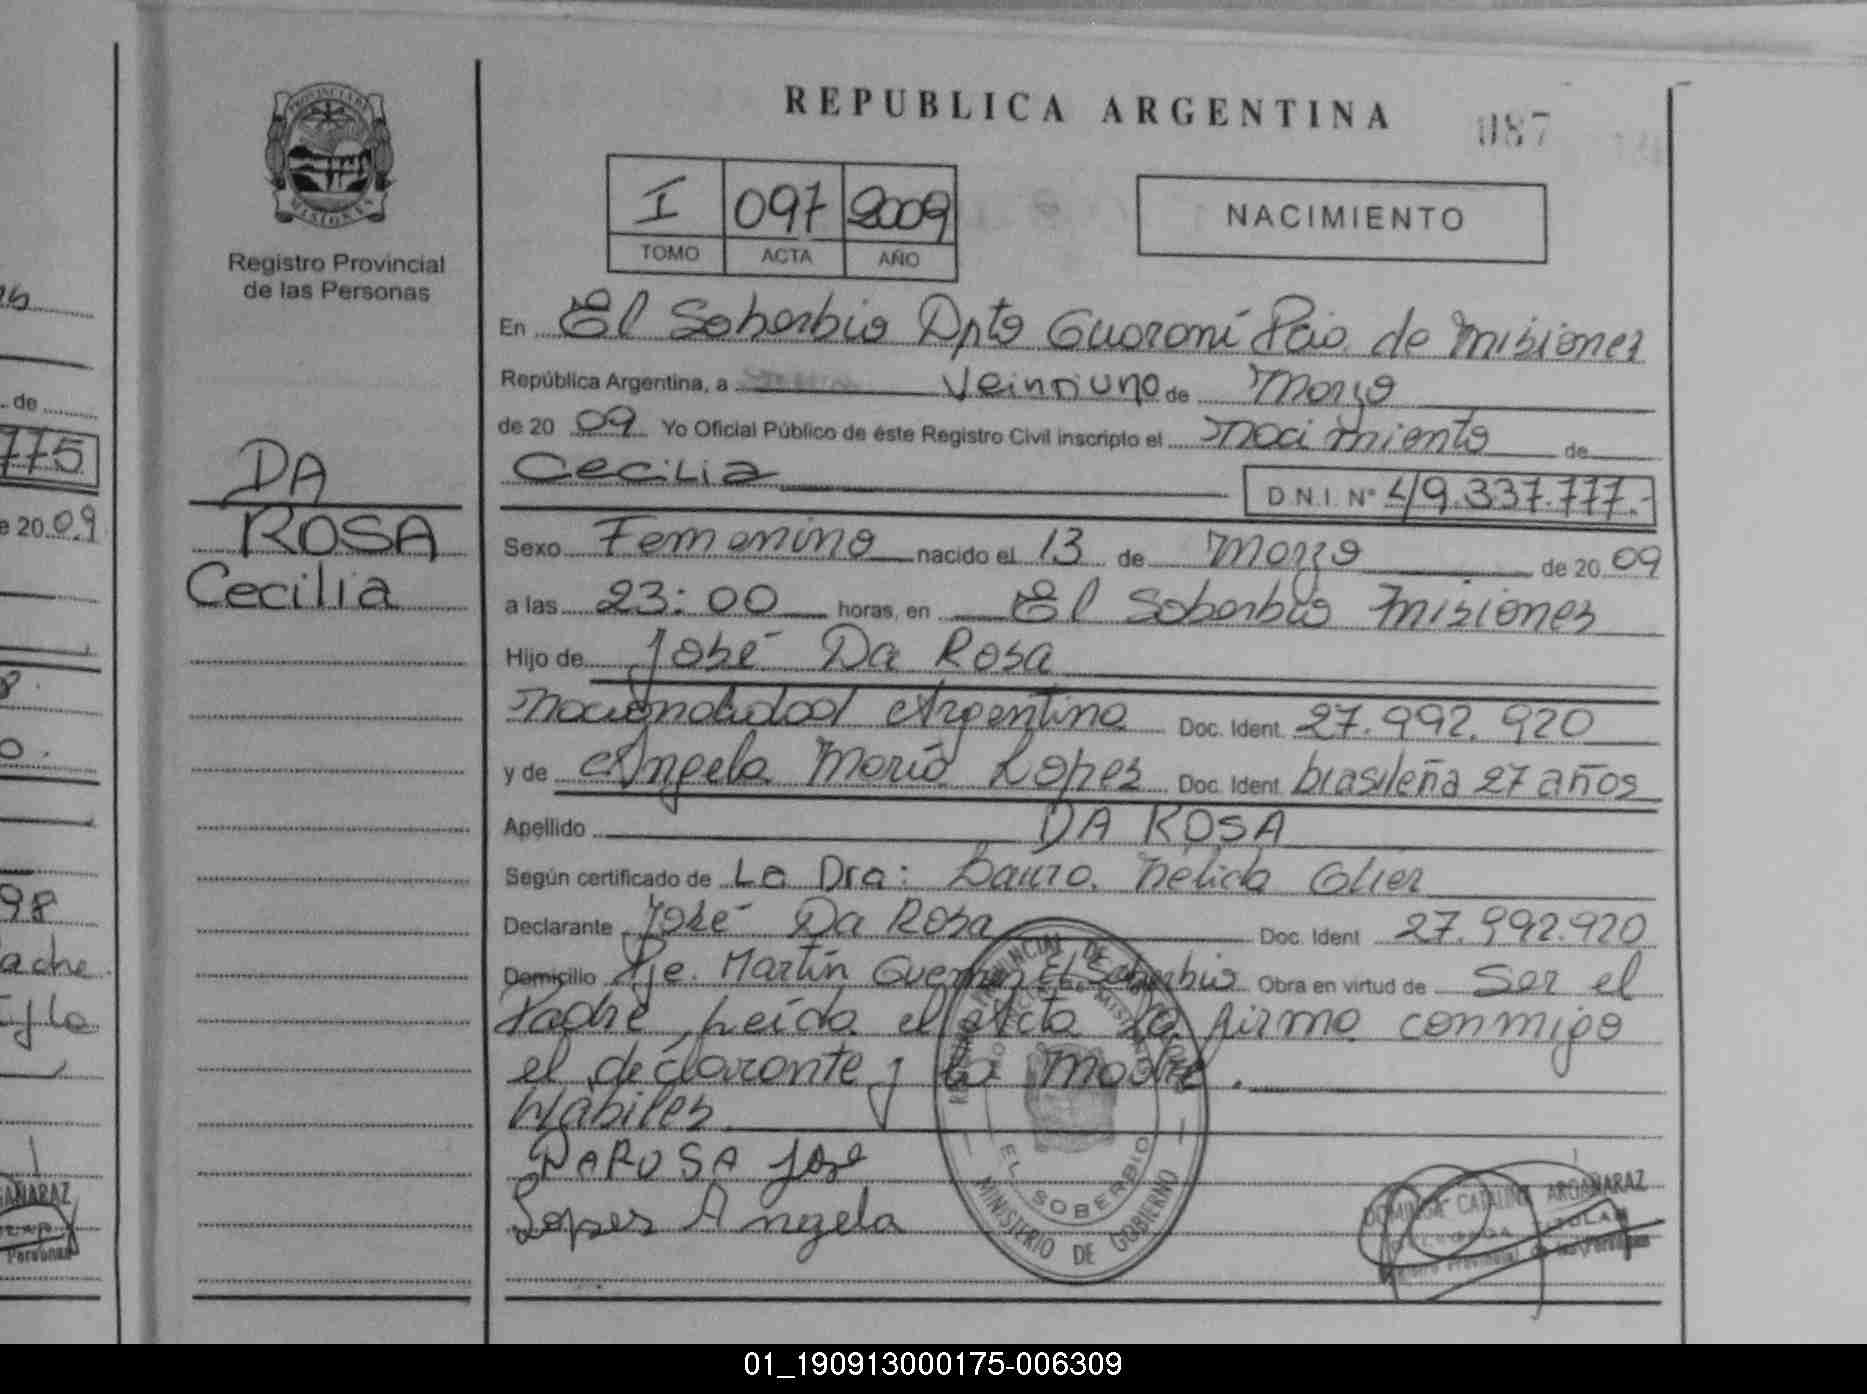 REPUBLICA ARGENTINA
087
PROVINCIA DE
MISIONES
Registro Provincial
de las Personas
I 097 2009
TOMO ACTA AÑO
NACIMIENTO
En El Soberbio Dpto Guaraní Pcia. de Misiones
República Argentina, a Veintiuno de Marzo
de 20 09 Yo Oficial Público de éste Registro Civil inscripto el Nacimiento de
Cecilia D.N.I. Nº 49.337.777.-
DA
ROSA
Cecilia
Sexo Femenino nacido el 13 de Marzo de 20 09
a las 23:00 horas, en El Soberbio Misiones
Hijo de José Da Rosa
Nacionalidad Argentina Doc. Ident. 27.992.920
y de Angela María Lopes Doc. Ident. brasileña 27 años
Apellido DA ROSA
Según certificado de La Dra: Laura Nélida Glier
Declarante José Da Rosa Doc. Ident 27.992.920
Domicilio Pje. Martín Guemes El Soberbio Obra en virtud de Ser el
Padre, Leída el Acta la firma conmigo
el declarante y la madre.
Hábiles.
DAROSA José
Lopes Angela
EL SOBERBIO
MINISTERIO DE GOBIERNO
DOMINGA CATALINA ARGAÑARAZ
DELEGADA TITULAR
Registro Provincial de las Personas
775
de
de 20 09
98
Padre
01_190913000175-006309